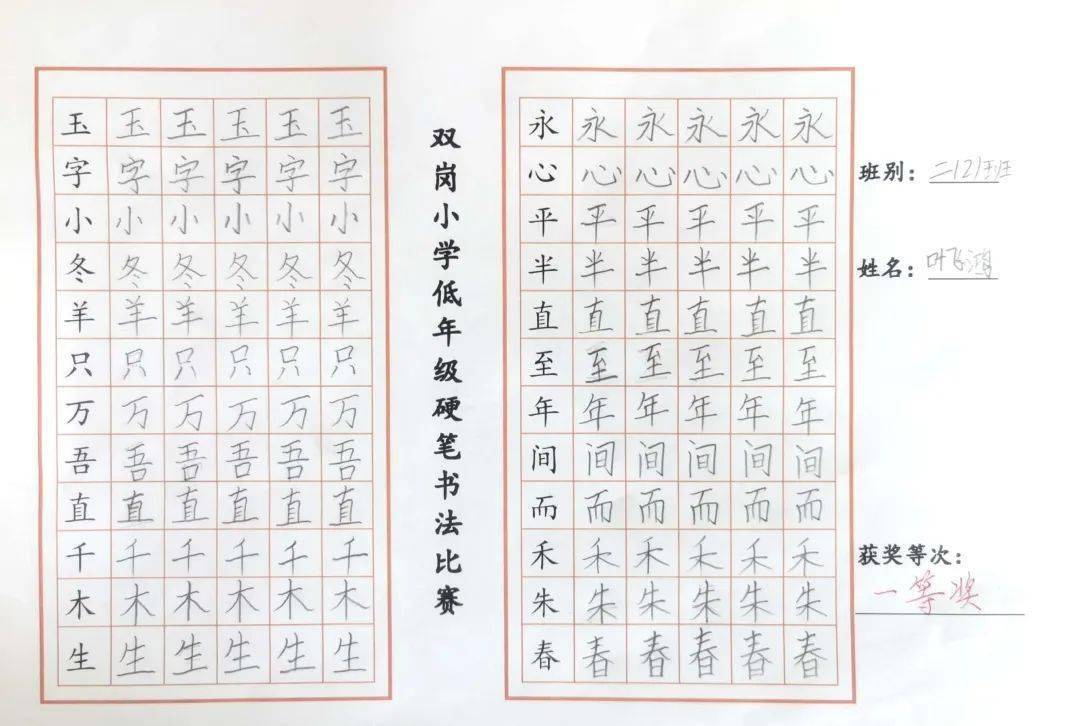 玉 玉 玉 玉 玉 玉
字 字 字 字 字 字
小 小 小 小 小 小
冬 冬 冬 冬 冬 冬
羊 羊 羊 羊 羊 羊
只 只 只 只 只 只
万 万 万 万 万 万
吾 吾 吾 吾 吾 吾
直 直 直 直 直 直
千 千 千 千 千 千
木 木 木 木 木 木
生 生 生 生 生 生
双岗小学低年级硬笔书法比赛
永 永 永 永 永 永
心 心 心 心 心 心
平 平 平 平 平 平
半 半 半 半 半 半
直 直 直 直 直 直
至 至 至 至 至 至
年 年 年 年 年 年
间 间 间 间 间 间
而 而 而 而 而 而
禾 禾 禾 禾 禾 禾
朱 朱 朱 朱 朱 朱
春 春 春 春 春 春
班别：二(2)班
姓名：叶飞鸿
获奖等次：
一等奖